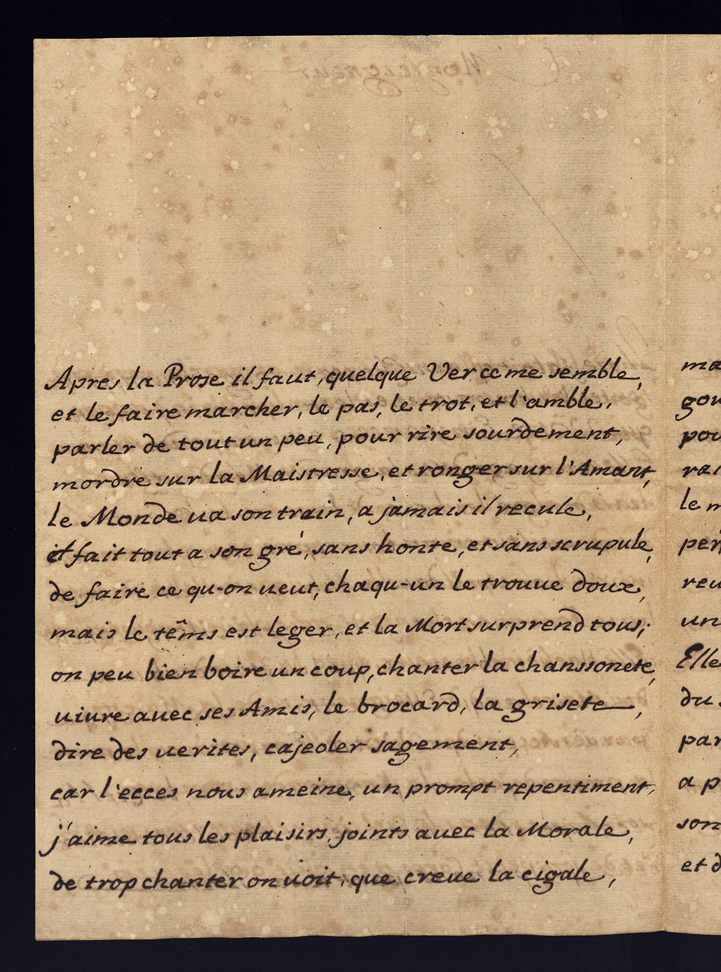 Apres la Prose il faut, quelque Ver ce me semble,
et le faire marcher, le pas, le trot, et l'amble,
parler de tout un peu, pour rire sourdement,
mordre sur la Maistresse, et ronger sur l'Amant,
le Monde ua son train, a jamais il recule,
it fait tout a son gré, sans honte, et sans scrupule,
de faire ce qu-on ueut, chaqu-un le trouue doux,
mais le têms est leger, et la Mort surprend tous;
on peu bien boire un coup, chanter la chanssonete,
uiure auec ses Amis, le brocard, la grisete,
dire des uerites, cajeoler sagement,
car l'ecces nous ameine, un prompt repentiment,
j'aime tous les plaisirs, joints auec la Morale,
de trop chanter on uoit, que creue la cigale,
ma
gou
pou
rai
le m
peñ
reu
un
Elle
du
par
a p
son
et d